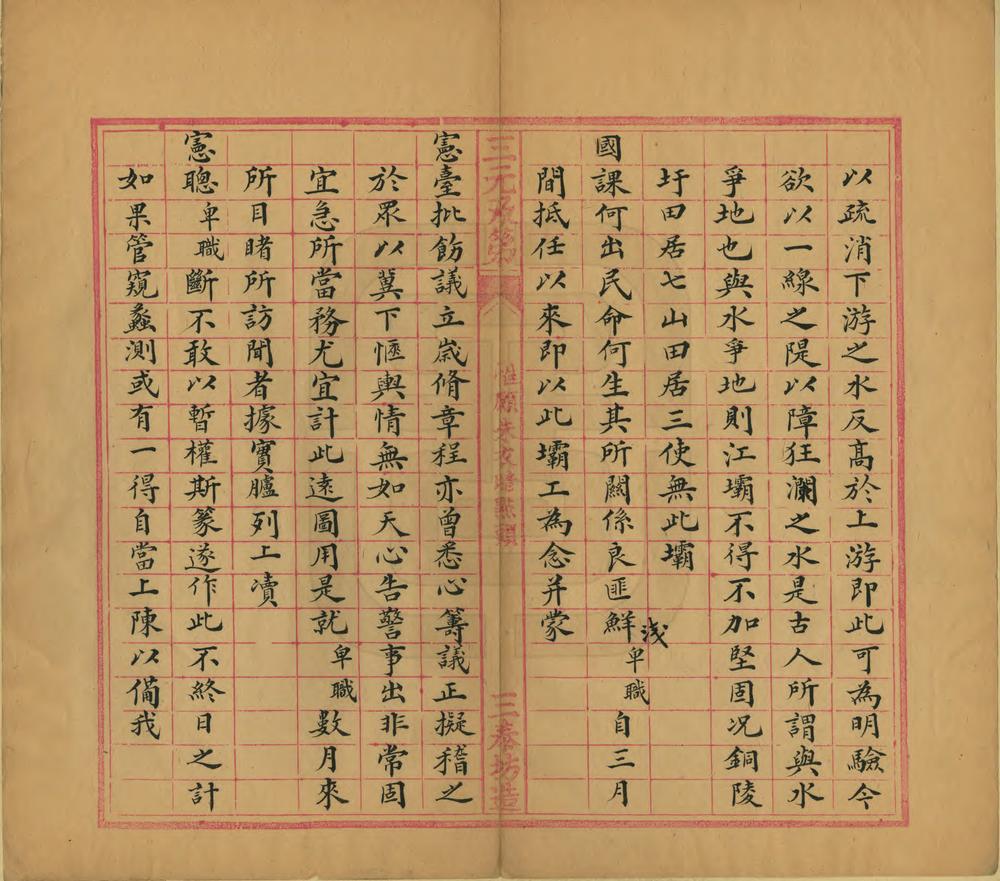 以疏消下游之水反高於上游即此可為明驗今
欲以一線之隄以障狂瀾之水是古人所謂與水
爭地也與水爭地則江壩不得不加堅固况銅陵
圩田居七山田居三使無此壩
國課何出民命何生其所關係良匪鮮淺卑職自三月
間抵任以來即以此壩工為念并蒙
三元及第
惟願朱衣暗點頭
三泰坊造
憲臺批飭議立歲脩章程亦曾悉心籌議正擬稽之
於眾以冀下愜輿情無如天心告警事出非常固
宜急所當務尤宜計此遠圖用是就卑職數月來
所目睹所訪聞者據實臚列上凟
憲聰卑職斷不敢以暫權斯篆遂作此不終日之計
如果管窺蠡測或有一得自當上陳以備我